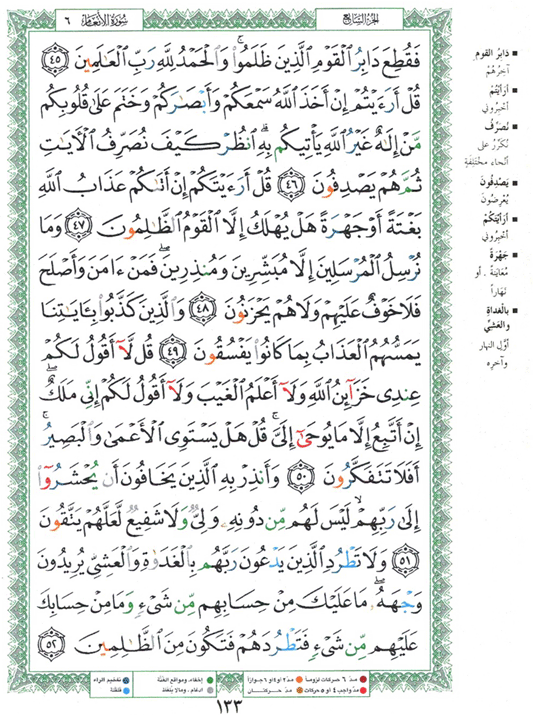 الجزء السابع
سورة الأنعام ٦
فَقُطِعَ دَابِرُ الْقَوْمِ الَّذِينَ ظَلَمُوا وَالْحَمْدُ لِلَّهِ رَبِّ الْعَالَمِينَ ٤٥
قُلْ أَرَءَيْتُمْ إِنْ أَخَذَ اللَّهُ سَمْعَكُمْ وَأَبْصَارَكُمْ وَخَتَمَ عَلَىٰ قُلُوبِكُم
مَّنْ إِلَٰهٌ غَيْرُ اللَّهِ يَأْتِيكُم بِهِ انظُرْ كَيْفَ نُصَرِّفُ الْآيَاتِ
ثُمَّ هُمْ يَصْدِفُونَ ٤٦ قُلْ أَرَءَيْتَكُمْ إِنْ أَتَاكُمْ عَذَابُ اللَّهِ
بَغْتَةً أَوْ جَهْرَةً هَلْ يُهْلَكُ إِلَّا الْقَوْمُ الظَّالِمُونَ ٤٧ وَمَا
نُرْسِلُ الْمُرْسَلِينَ إِلَّا مُبَشِّرِينَ وَمُنذِرِينَ فَمَنْ ءَامَنَ وَأَصْلَحَ
فَلَا خَوْفٌ عَلَيْهِمْ وَلَا هُمْ يَحْزَنُونَ ٤٨ وَالَّذِينَ كَذَّبُوا بِـَٔايَاتِنَا
يَمَسُّهُمُ الْعَذَابُ بِمَا كَانُوا يَفْسُقُونَ ٤٩ قُل لَّا أَقُولُ لَكُمْ
عِندِي خَزَائِنُ اللَّهِ وَلَا أَعْلَمُ الْغَيْبَ وَلَا أَقُولُ لَكُمْ إِنِّي مَلَكٌ
إِنْ أَتَّبِعُ إِلَّا مَا يُوحَىٰ إِلَيَّ قُلْ هَلْ يَسْتَوِي الْأَعْمَىٰ وَالْبَصِيرُ
أَفَلَا تَتَفَكَّرُونَ ٥٠ وَأَنذِرْ بِهِ الَّذِينَ يَخَافُونَ أَن يُحْشَرُوا
إِلَىٰ رَبِّهِمْ لَيْسَ لَهُم مِّن دُونِهِ وَلِيٌّ وَلَا شَفِيعٌ لَّعَلَّهُمْ يَتَّقُونَ
٥١ وَلَا تَطْرُدِ الَّذِينَ يَدْعُونَ رَبَّهُم بِالْغَدَوٰةِ وَالْعَشِيِّ يُرِيدُونَ
وَجْهَهُ مَا عَلَيْكَ مِنْ حِسَابِهِم مِّن شَيْءٍ وَمَا مِنْ حِسَابِكَ
عَلَيْهِم مِّن شَيْءٍ فَتَطْرُدَهُمْ فَتَكُونَ مِنَ الظَّالِمِينَ ٥٢
دَابِرُ القوم
آخِرُهُمْ
أَرَأَيْتُمْ
أَخْبِرُونِي
نُصَرِّفُ
نُكَرِّرُ على
أنْحاء مختلفةٍ
يَصْدِفُونَ
يُعْرِضُونَ
أَرَأَيْتَكُمْ
أخْبِرُوني
جَهْرَةً
مُعَايَنَةً . أو
نَهَاراً
بِالْغَداةِ
والعَشيِّ
أوّلِ النهار
وآخره
مدّ ٦ حركات لزوماً
مدّ ٢ أو ٤ أو ٦ جوازاً
إخفاء، ومواقع الغُنَّة
تفخيم الراء
مدّ واجب ٤ أو ٥ حركات
مدّ حركتان
ادغام ، ومالا يُلفظ
قلقلة
١٣٣